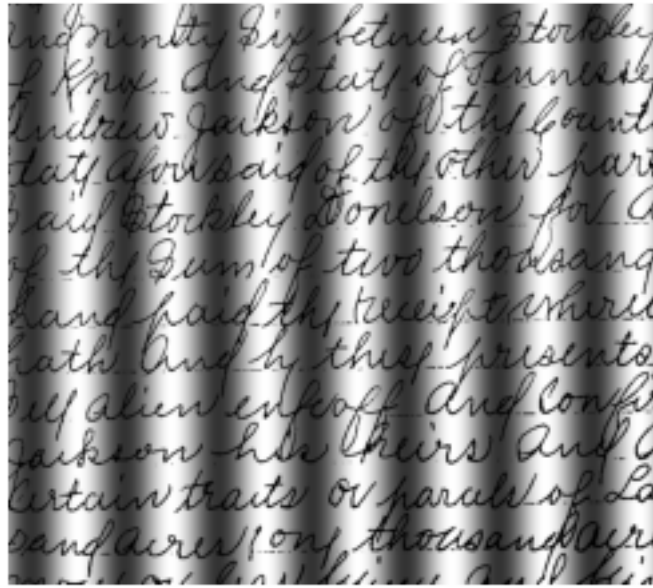 and ninety Six between Stockley
of Knox And State of Tennessee
Andrew Jackson of the Count
State aforesaid of the other part
Said Stockley Donelson for a
of the Sum of two thousand
hand paid the receipt where
hath And by these presents
Sell alien enfeoff And Confir
Jackson his heirs And A
Certain tracts or parcels of La
sand acres one thousand acre